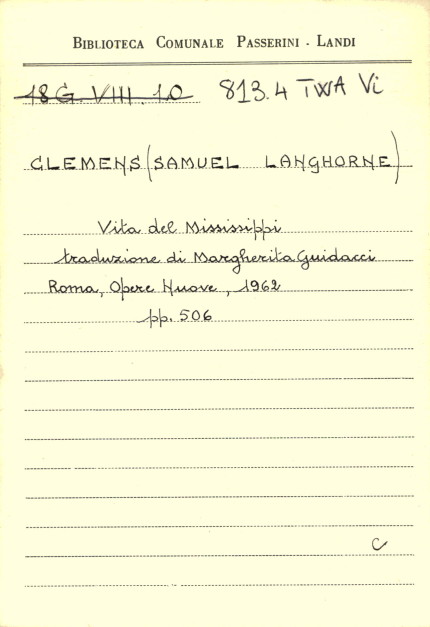 BIBLIOTECA COMUNALE PASSERINI - LANDI
18G. VIII. 10 813.4 TWA Vi
CLEMENS (SAMUEL LANGHORNE)
Vita del Mississippi
traduzione di Margherita Guidacci
Roma, Opere Nuove, 1962
pp. 506
C